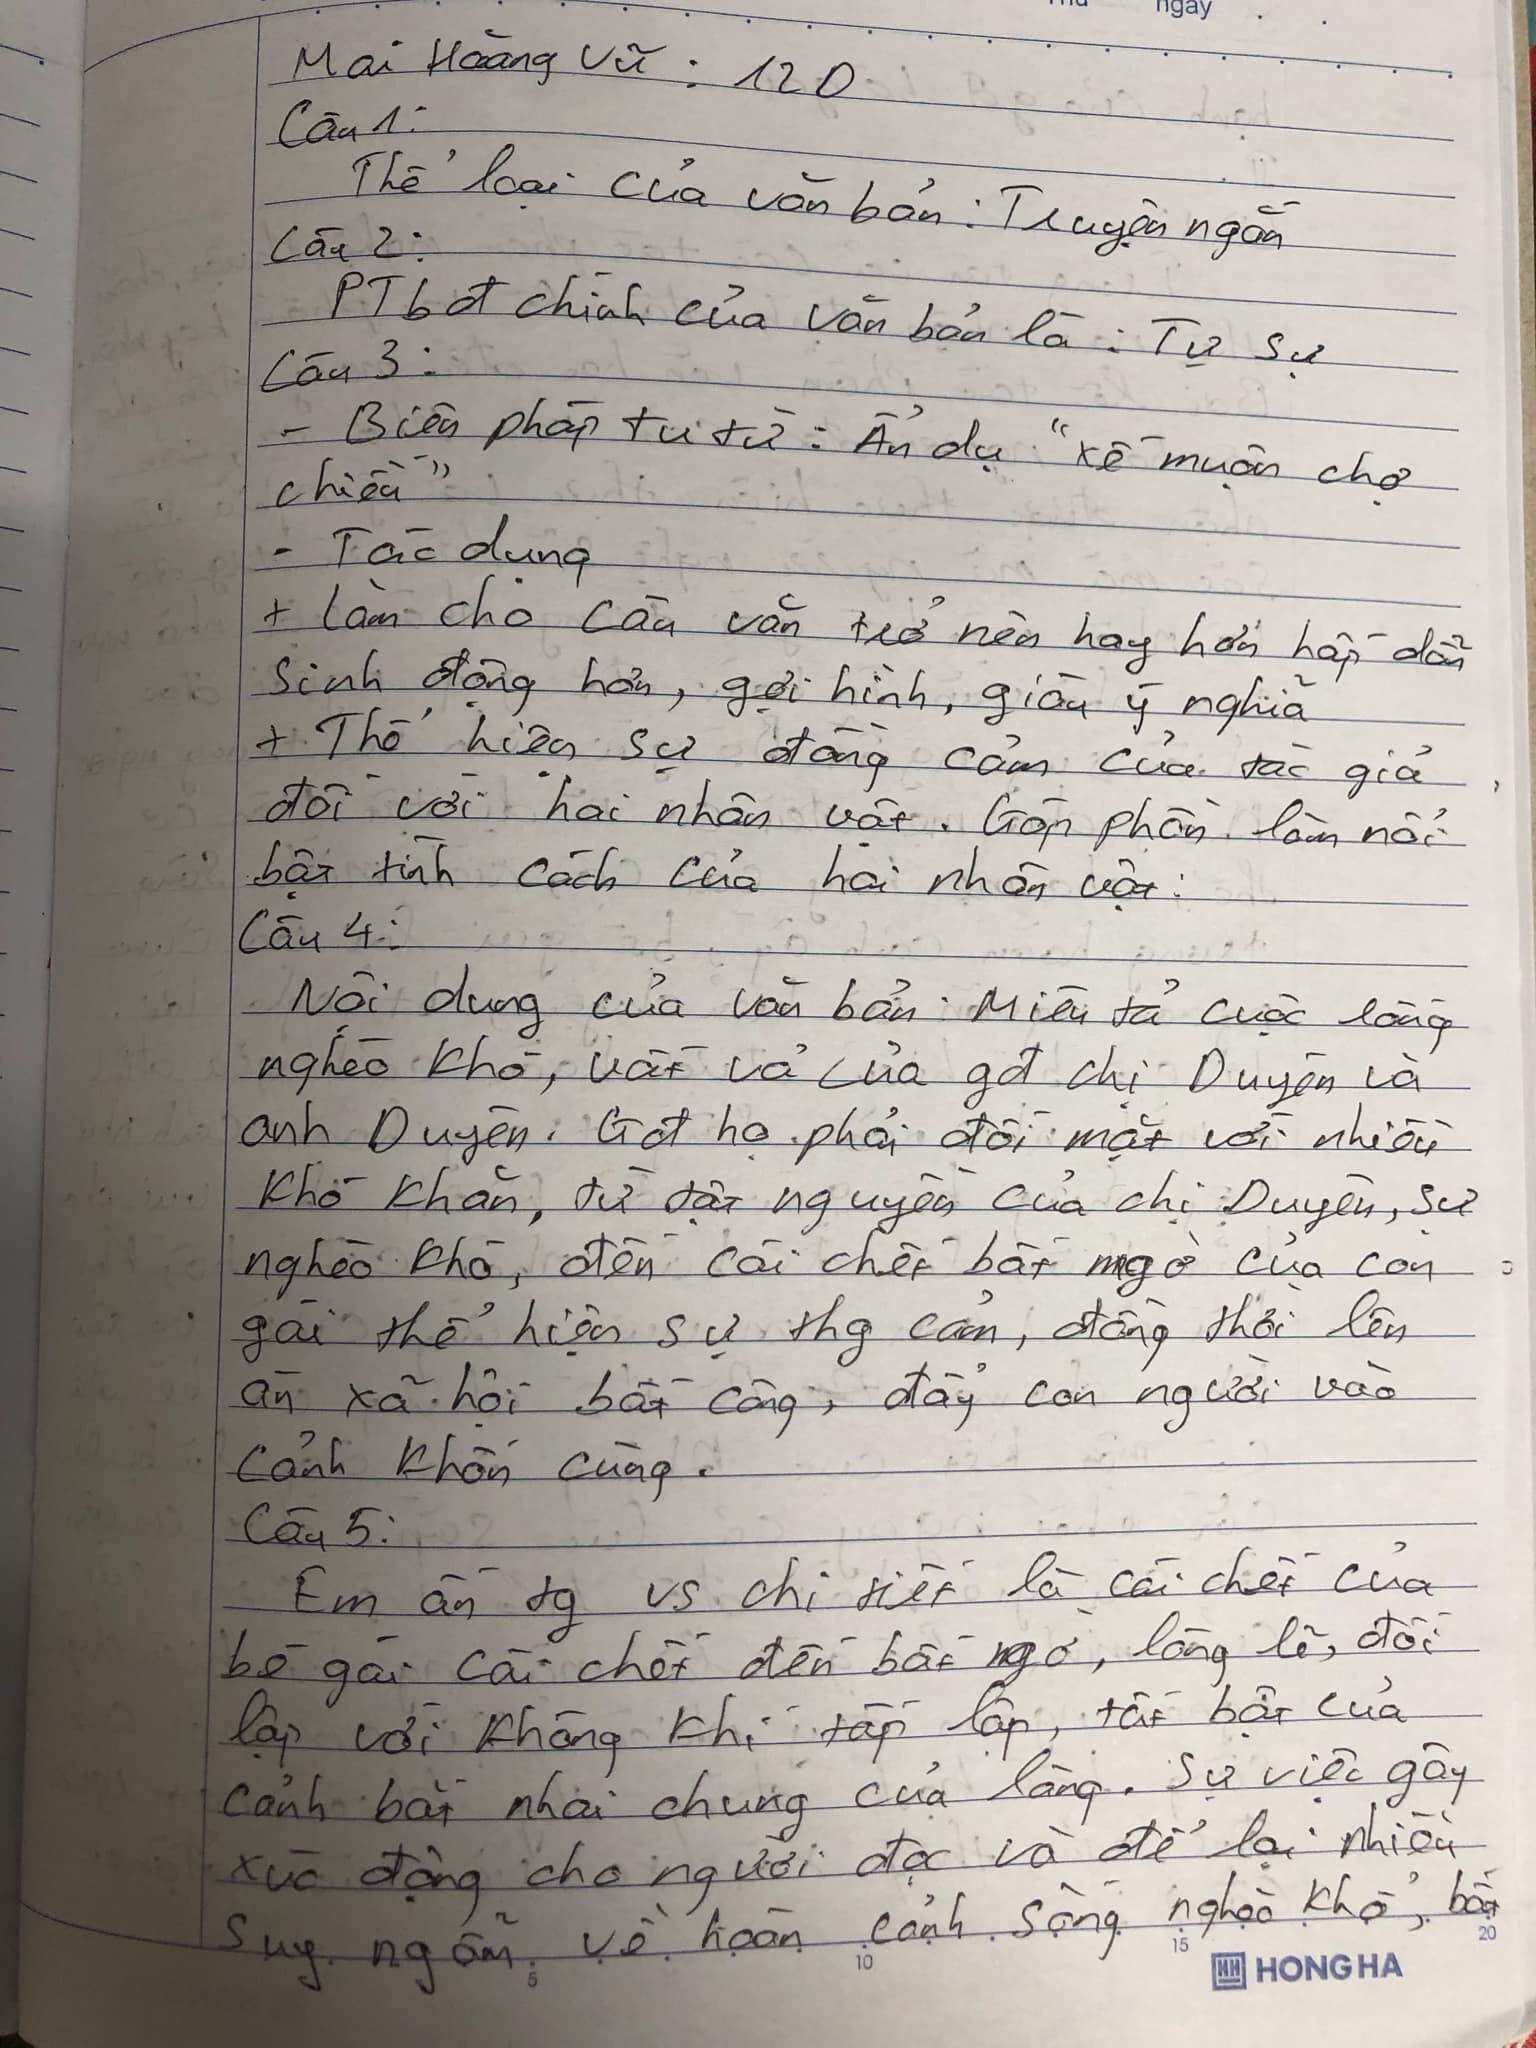 Thứ ngày
Mai Hoàng Vũ : 12D
Câu 1:
Thể loại của văn bản : Truyện ngắn
Câu 2:
PTbđt chính của văn bản là : Tự sự
Câu 3 :
- Biện pháp tu từ : Ẩn dụ "xế muộn chợ
chiều"
- Tác dụng
+ Làm cho câu văn trở nên hay hơn hấp dẫn
sinh động hơn, gợi hình, giàu ý nghĩa
+ Thể hiện sự đồng cảm của tác giả
đối với hai nhân vật. Góp phần làm nổi
bật tính cách của hai nhân vật.
Câu 4:
Nội dung của văn bản : Miêu tả cuộc sống
nghèo khó, vất vả của gđ chị Duyên và
anh Duyên. Gđ họ phải đối mặt với nhiều
khó khăn, từ tật nguyền của chị Duyên, sự
nghèo khó, đến cái chết bất ngờ của con
gái thể hiện sự thg cảm, đồng thời lên
án xã hội bất công, đẩy con người vào
cảnh khốn cùng.
Câu 5:
Em ấn tg vs chi tiết là cái chết của
bé gái cái chết đến bất ngờ, lặng lẽ, đối
lập với không khí tấp lập, tất bật của
cảnh bắt nhái chung của làng. Sự việc gây
xúc động cho người đọc và để lại nhiều
suy ngẫm về hoàn cảnh sống nghèo khổ, bất
5 10 15 20
HH HONG HA